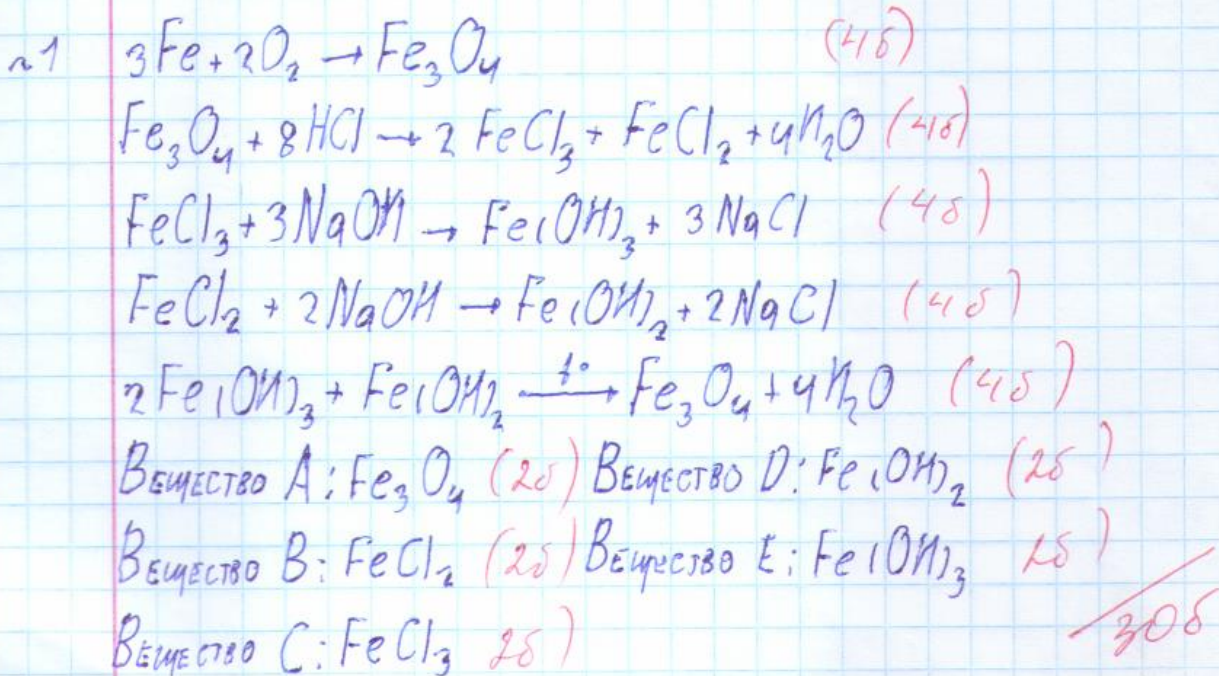 №1 3Fe + 2O₂ → Fe₃O₄ (4б)
Fe₃O₄ + 8HCl → 2 FeCl₃ + FeCl₂ + 4H₂O (4б)
FeCl₃ + 3NaOH → Fe(OH)₃ + 3NaCl (4б)
FeCl₂ + 2NaOH → Fe(OH)₂ + 2NaCl (4б)
2Fe(OH)₃ + Fe(OH)₂ —t°→ Fe₃O₄ + 4H₂O (4б)
Вещество A: Fe₃O₄ (2б) Вещество D: Fe(OH)₂ (2б)
Вещество B: FeCl₂ (2б) Вещество E: Fe(OH)₃ 2б)
Вещество C: FeCl₃ 2б)
30б